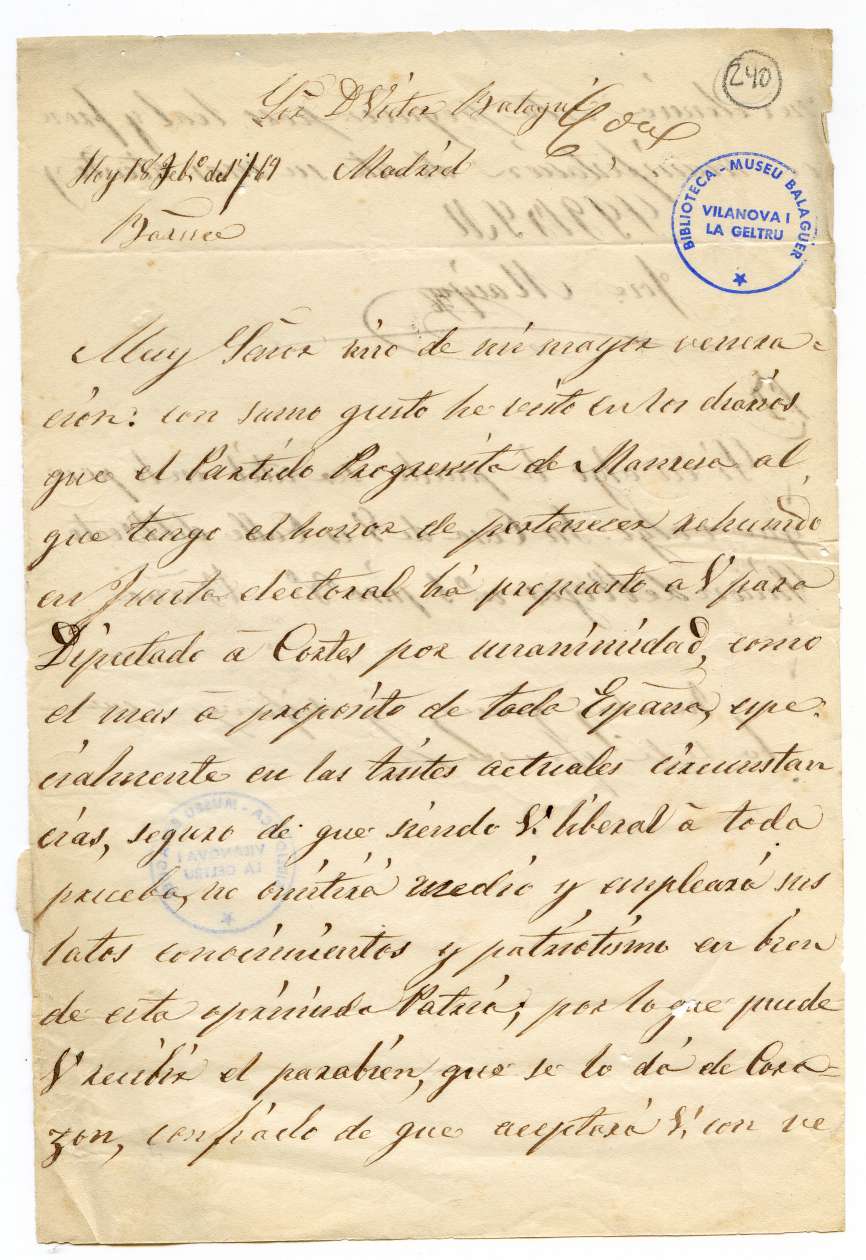 240
Sor. Dn Victor Balaguer
Hoy 18 Febo. del /69 Madrid
BIBLIOTECA - MUSEU BALAGUER
VILANOVA I
LA GELTRU
Muy Señor mio de mi mayor venera-
cion: con sumo gusto he visto en los diarios
que el Partido Progresista de Manresa al
que tengo el honor de pertenecer rehunido
en Junta electoral há propuesto á V. para
Diputado á Cortes por unanimidad, como
el mas á proposito de toda España, espe-
cialmente en las tristes actuales circunstan
cias, seguro de que siendo V. liberal á toda
prueba, no omitirá medio y empleará sus
latos conocimientos y patriotismo en bien
de esta oprimida Patria; por lo que puede
V. recibir el parabien, que se lo dá de Cora-
zon, confiado de que aceptará V. con ve